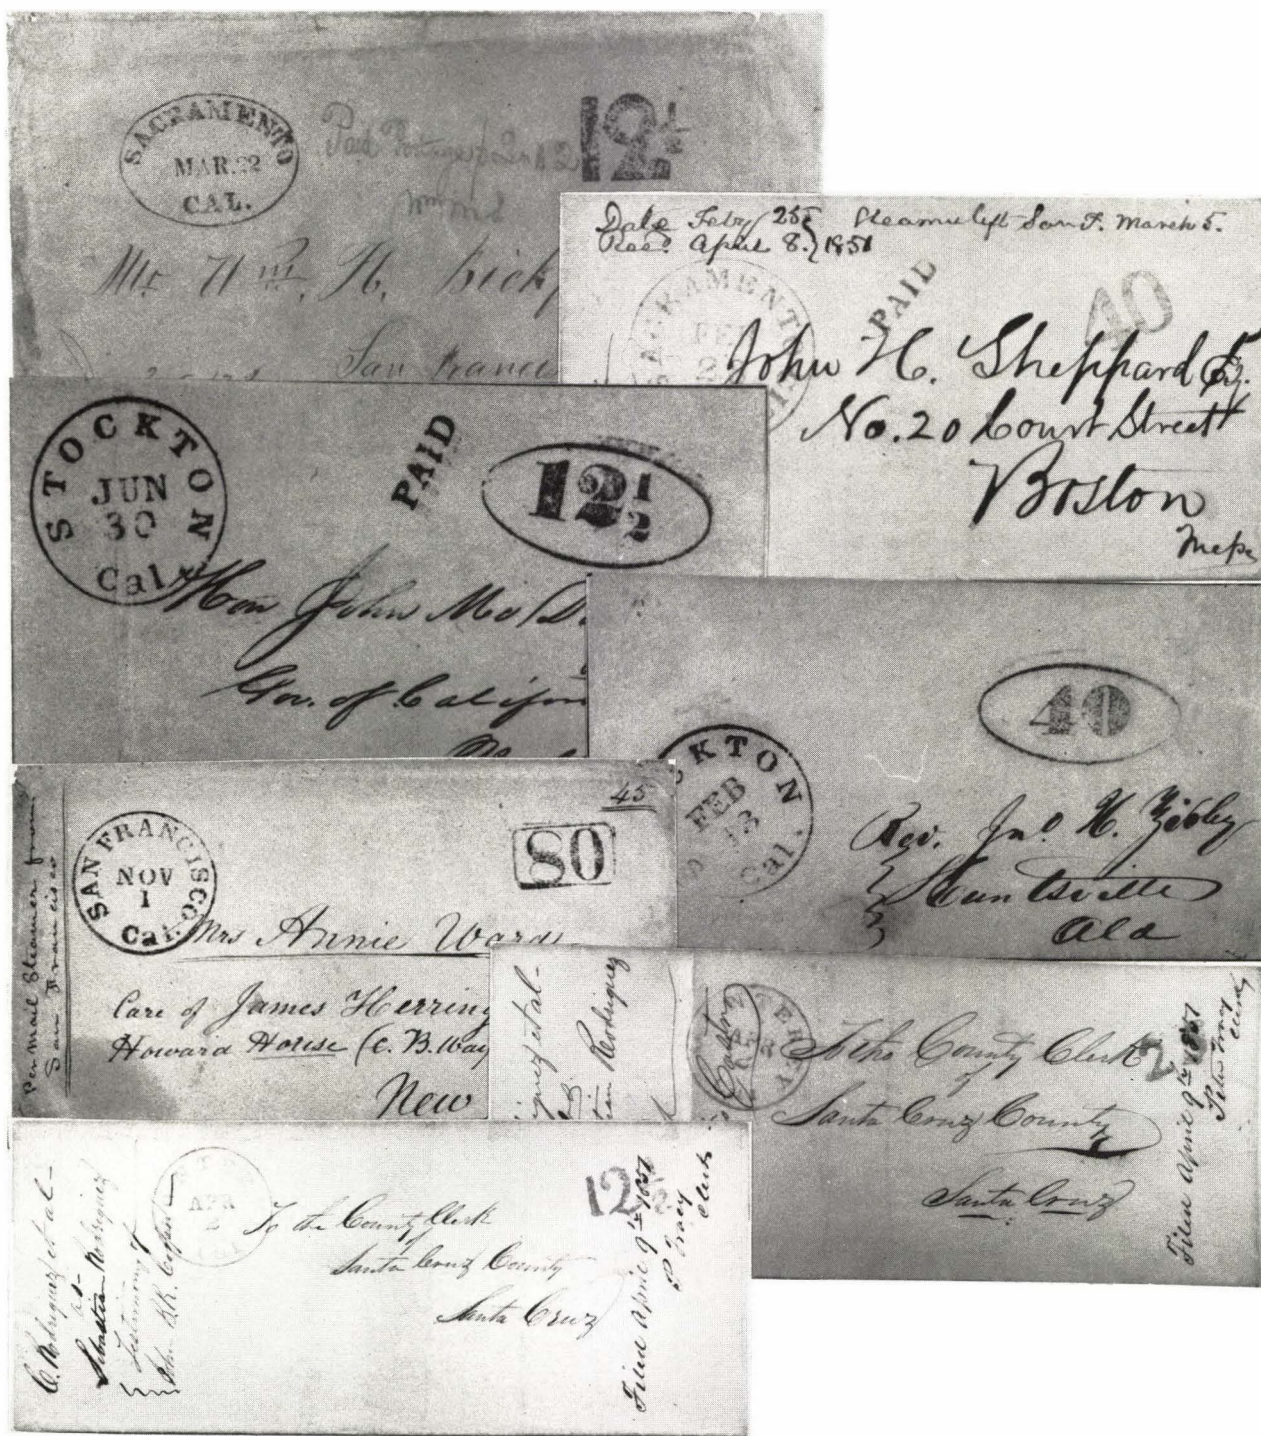 SACRAMENTO
MAR. 22
CAL.
Paid Postage
12½
Mr Wm. H.
San Franc
Date Feby 25
Recd. April 8. } 1851
Steamer left San F. March 5.
SACRAMENTO
PAID
40
John H. Sheppard Esq.
No. 20 Court Street
Boston
STOCKTON
JUN
30
Cal.
PAID
12½
Hon John McD
Gov. of Califor
CKTON
FEB
Cal.
40
Rev. Jno. H.
Huntsville
Ala
Per Mail Steamer from
San Francisco
SAN FRANCISCO
NOV
1
Cal.
45
80
Mrs Annie Ward
Care of James Herring
Howard House (C. B. Way
New
et al-
Rodriguez
TEREY
2
To the County Clerk
of
Santa Cruz County
Santa Cruz
Filed April 9th 1851
Peter Tracy
Clerk
C. Rodriguez et al-
vs-
Sebastian Rodriguez
Testimony of
John B.R. Cooper
APR
2
12½
To the County Clerk
of
Santa Cruz County
Santa Cruz
Filed April 9th 1851
P Tracy
Clerk